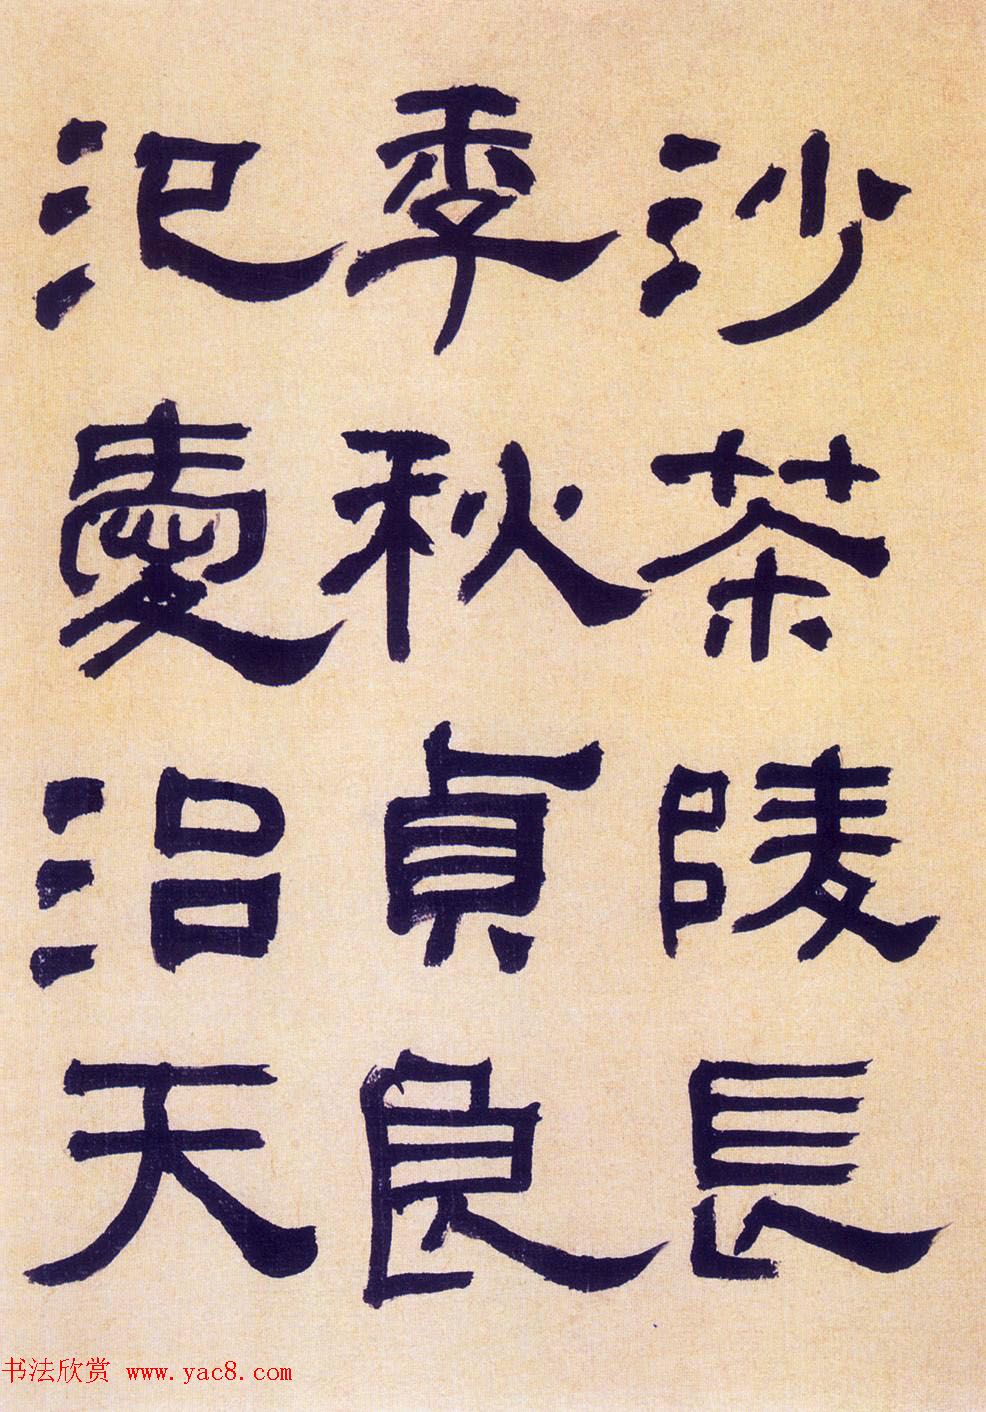 沙茶陵長
季秋貞良
氾愛治天
书法欣赏 www.yac8.com